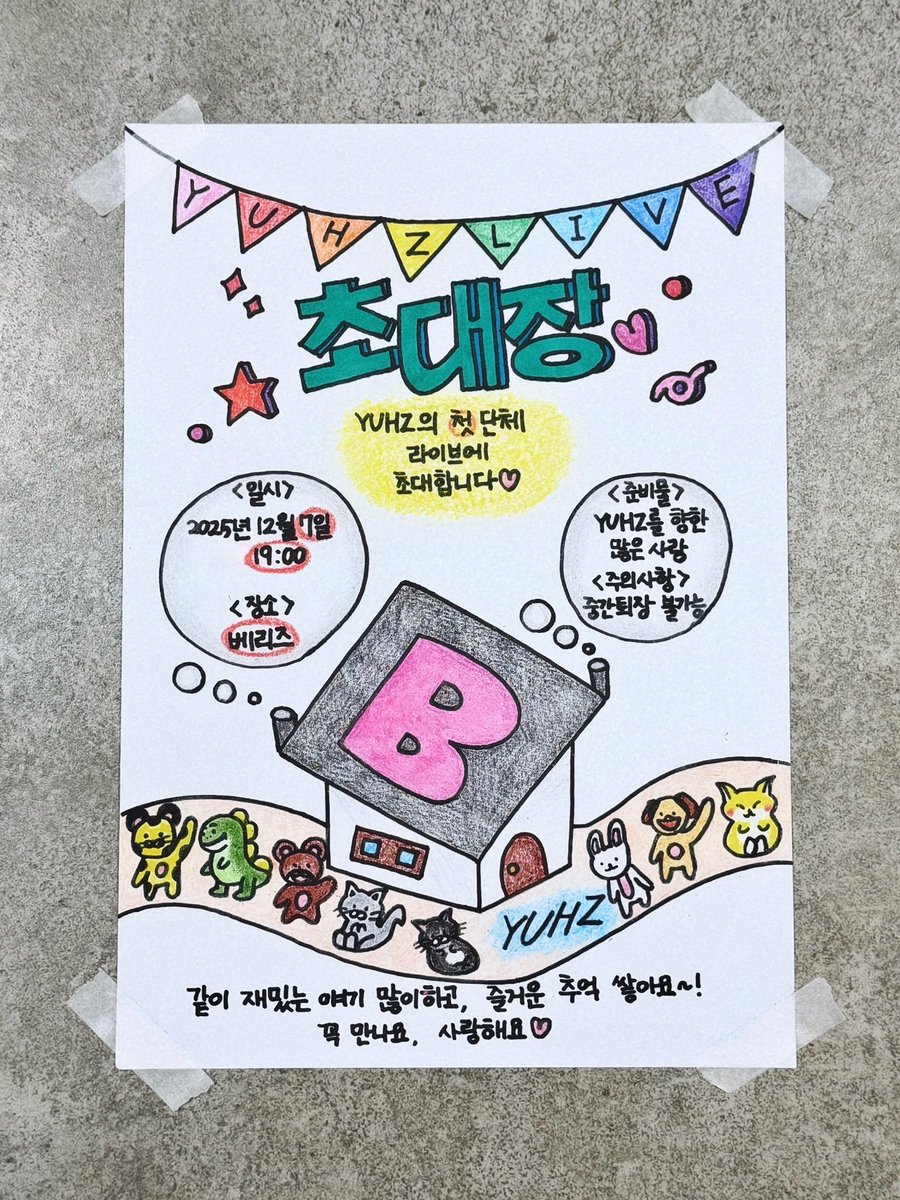 YUHZLIVE
초대장
YUHZ의 첫 단체
라이브에
초대합니다♡
<일시>
2025년 12월 7일
19:00
<장소>
베리즈
<준비물>
YUHZ를 향한
많은 사랑
<주의사항>
중간퇴장 불가능
B
YUHZ
같이 재밌는 얘기 많이하고, 즐거운 추억 쌓아요~!
꼭 만나요, 사랑해요♡